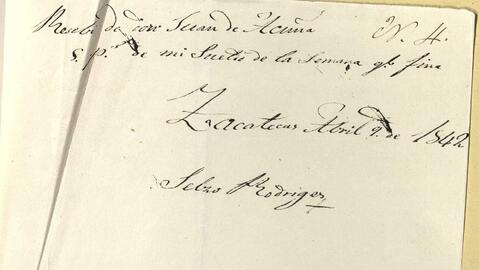 Resebi de don Juan de Acuña N. 4.
8 p.s de mi Sueldo de la Semana q.e fina
Zacatecas Abril 9. de 1842
Selzo Rodrigez